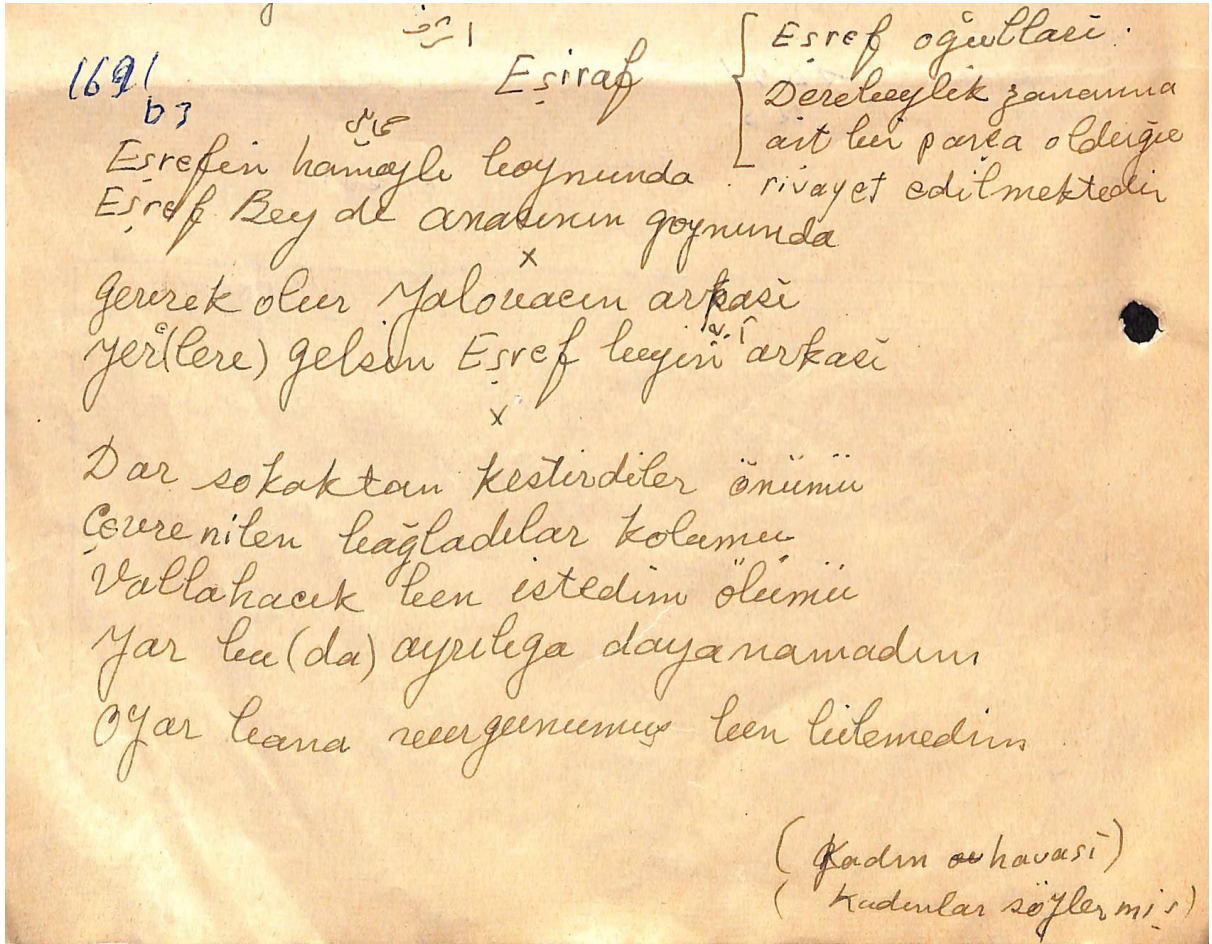 اشرف
Eşiraf
1691
b3
Eşref oğulları.
Derebeylik zamanına
ait bir parça olduğu
rivayet edilmektedir
Eşrefin hamaylı boynunda
Eşref Bey de anasının goynunda
x
Gevrek olur Yalovacın arkası
Yer(lere) gelsin Eşref beyin arkası
x
Dar sokaktan kestirdiler önümü
Çevrenilen bağladılar kolumu
Vallahacık ben istedim ölümü
Yar bu(da) ayrılıga dayanamadım
O yar bana vurgunumuş ben bilemedim
(Kadın havası)
(Kadınlar söylermiş)